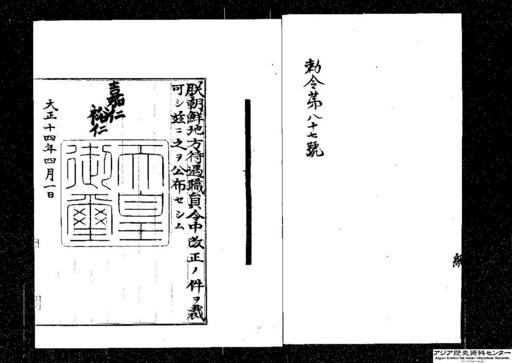 勅令第八十七號
朕朝鮮地方待遇職員令中改正ノ件ヲ裁
可シ茲ニ之ヲ公布セシム
嘉仁
裕仁
天皇
御璽
大正十四年四月一日
アジア歴史資料センター
Japan Center for Asian Historical Records